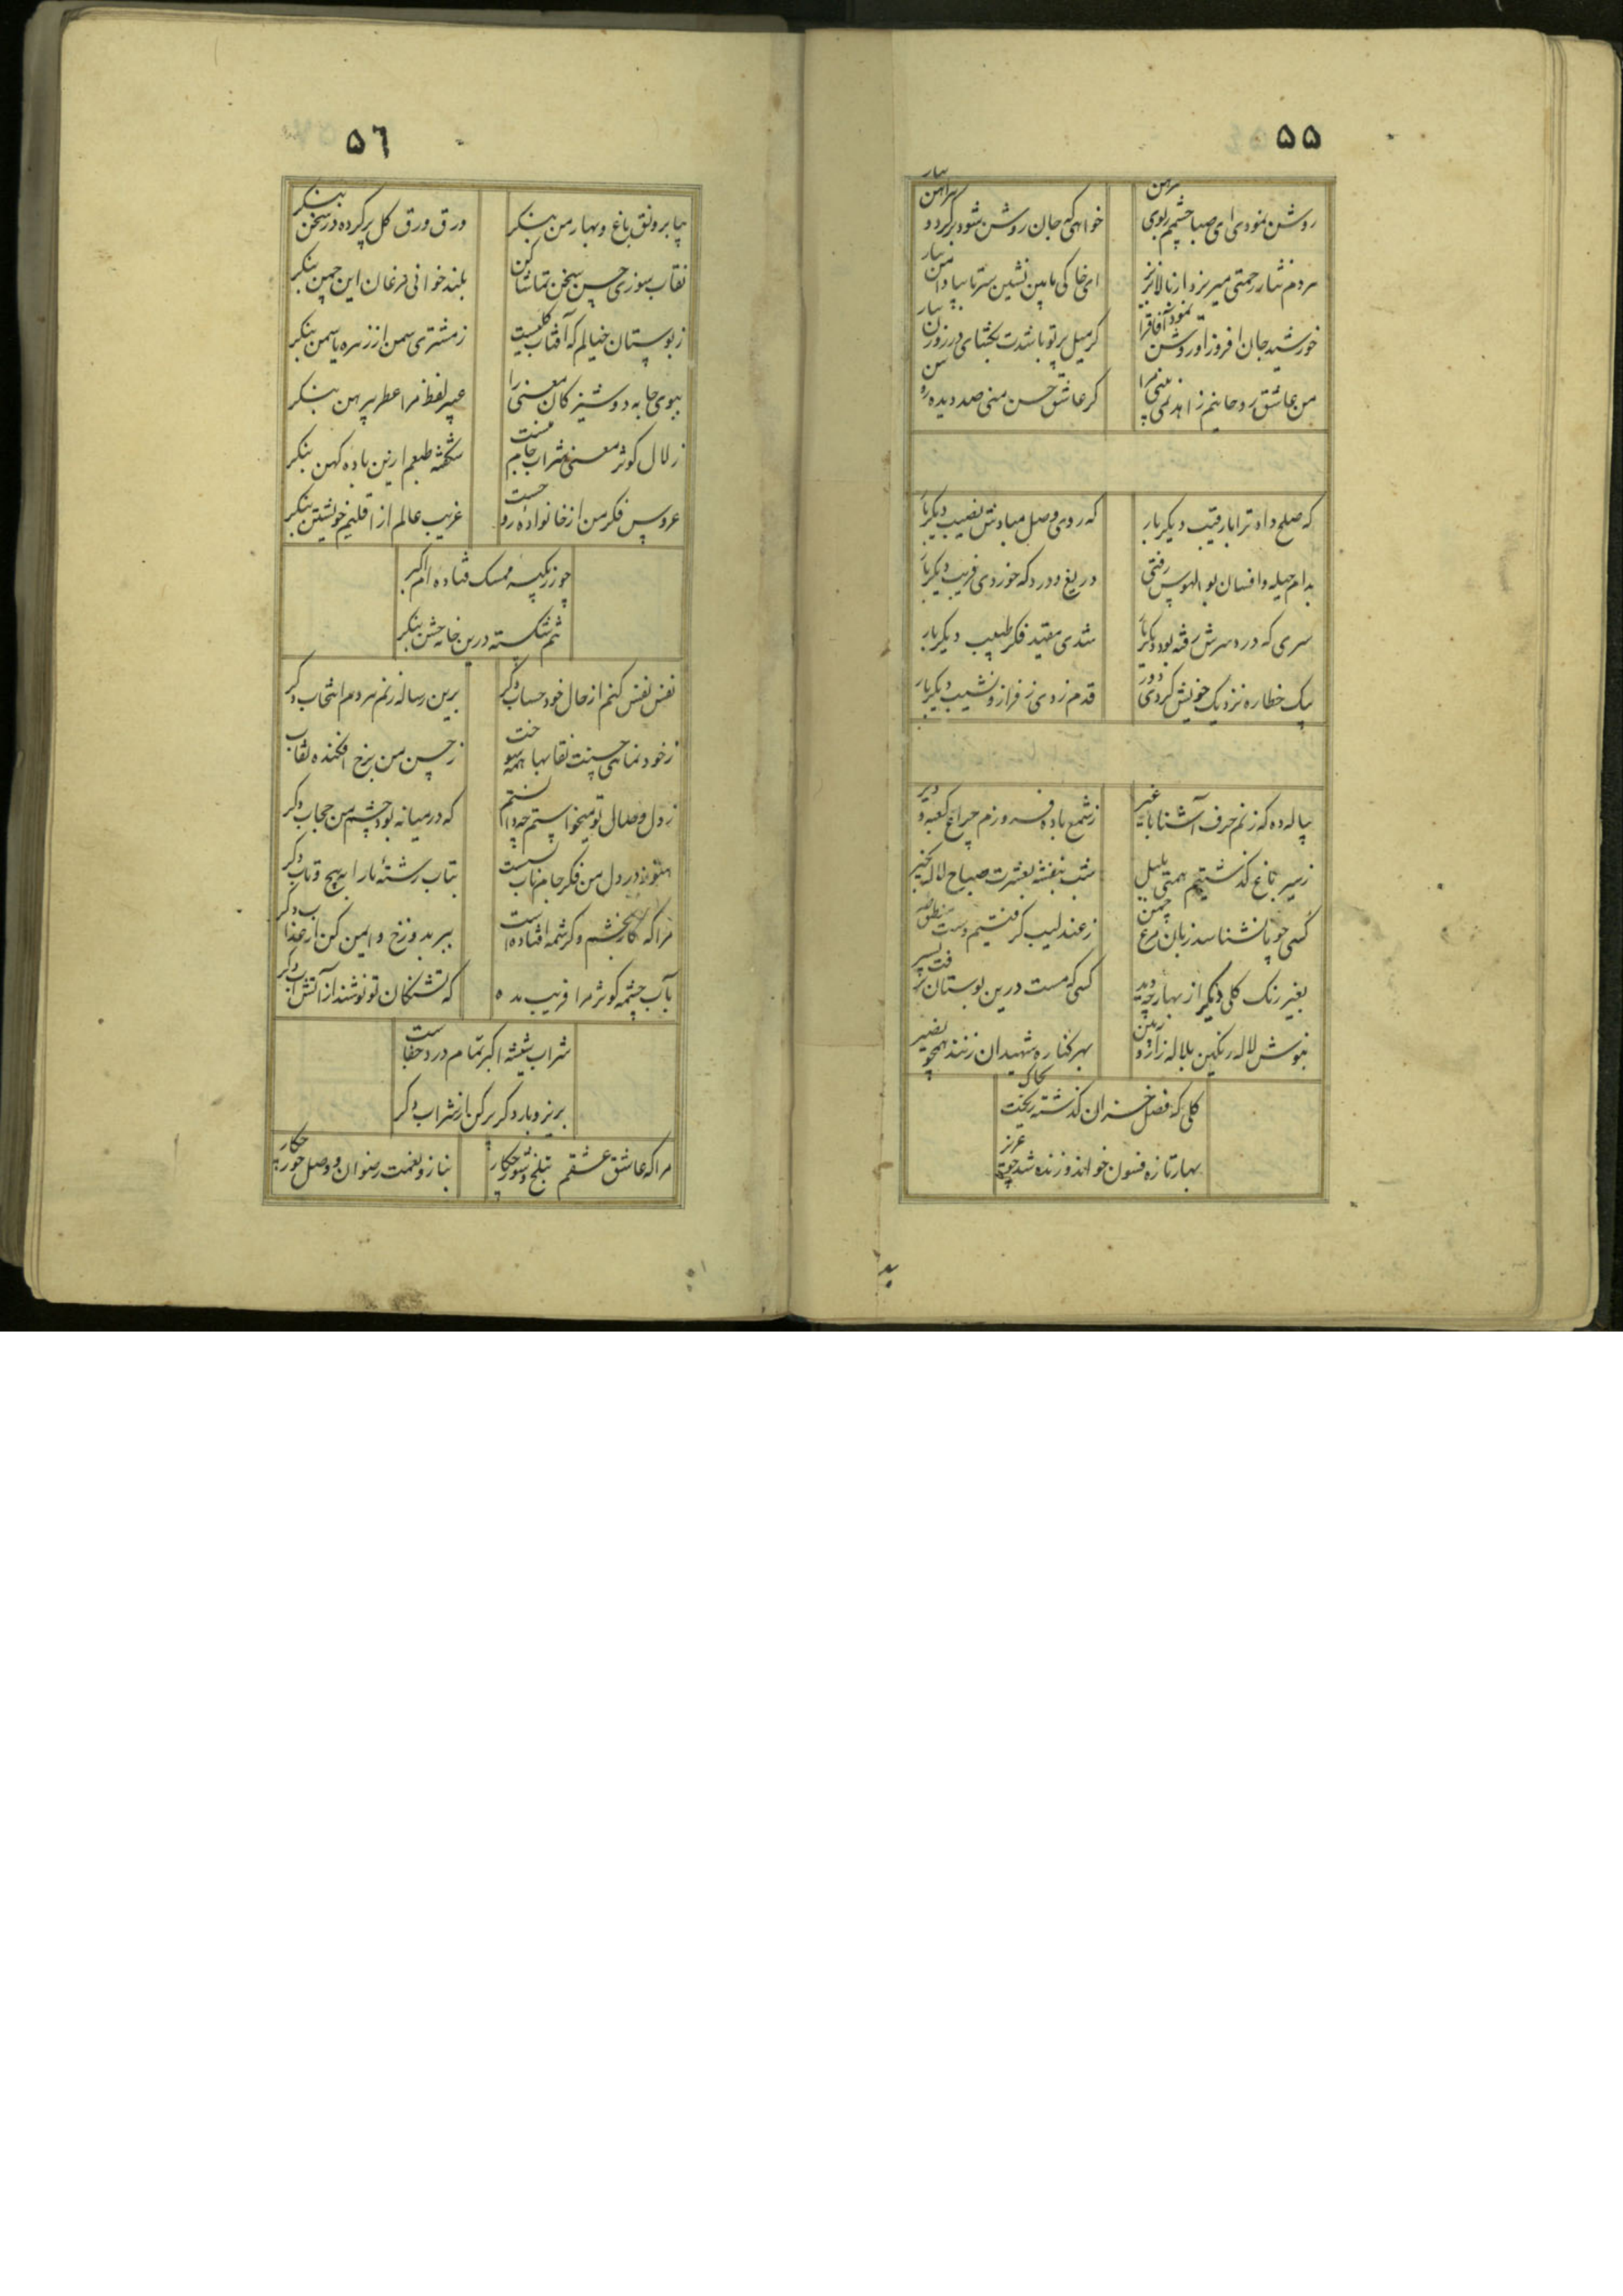 ۵۵
روشن نمودی ای صبا چشمم ببوی پیرهن
خواهی که جان روشن شود برگرد و پیراهن بیار
مردم نثار رحمتی میریزد از بالا بزیر
ای خاکی پایین نشین سر تا بپا دامن بیار
خورشید جان افروز او روشن نمود آفاق را
گر میل پرتو باشدت بگشای در روزن بیار
من عاشق روحانیم زاهد نمی بینی مرا
گر عاشق حسن منی صد دیده
که صلح داد ترا با رقیب دیگر بار
که روی وصل مبادش نصیب دیگر بار
بدام حیله و افسان بوالهوس رفتی
دریغ و درد که خوردی فریب دیگر بار
سری که درد سرش رفته بود دیگر بار
شدی مقید فکر طبیب دیگر بار
بیک خطاره نزدیک خویش کردی دور
قدم زدی ز فراز و نشیب دیگر بار
پیاله ده که زنم حرف آشنا با غیر
ز شمع باده فروزم چراغ کعبه و دیر
ز سیر باغ گذشتیم همتی بلبل
شب بنفشه بعشرت صباح لاله بخیر
کسی چو پا نشناسد زبان مرغ چمن
ز عندلیب گرفتیم منطق
بغیر رنگ گلی دیگر از بهار چه دید
کسی که مست درین بوستان
بنوش لاله رنگین بلاله زار و ببین
بهر کناره شهیدان زنند همچو
گلی که فصل خزان گذشته ریخت بخاک
بهار تازه فسون خواند و زنده شد چو عزیر
۵٦
بیا برونق باغ و بهار من بنگر
ورق ورق گل پر کرده در سخن بنگر
نقاب سوزی حسن سخن تماشا کن
بلند خوانی مرغان این چمن بنگر
ز بوستان خیالم که آفتاب گلیست
ز مشتری سمن از زهره یاسمن بنگر
ببوی جابه دوشیزگان معنی را
عبیر لفظ مرا عطر پیرهن بنگر
زلال کوثر معنی شراب جام منست
شکفته طبعم ازین باده کهن بنگر
عروس فکر من از خانواده
غریب عالم از اقلیم خویشتن بنگر
چو زر بکیسه ممسک فتاده ام اکبر
بنگر
نفس نفس کنم از حال خود حساب دگر
برین رساله زنم هر دم انتخاب دگر
ز خود نمایی حسنت نقابها همه سوخت
ز حسن من برخ افکنده نقاب
ز دل وصال تو میخواستم چه دانستم
که در میانه بود چشم من حجاب دگر
هنوز در دل من فکر خام نایابست
بتاب رشته ما را به پیچ و تاب دگر
مرا که کار بخشم و کرشمه افتاده است
ببر بدوزخ و ایمن کن از عذاب دگر
بآب چشمه کوثر مرا فریب مده
که تشنگان تو نوشند از آتش آب دگر
شراب شیشه اکبر تمام درد جفاست
بریز و بار دگر پر کن از شراب دگر
مرا که عاشق عشقم بتلخ و شور چکار
بناز و نعمت رضوان و وصل حور چکار